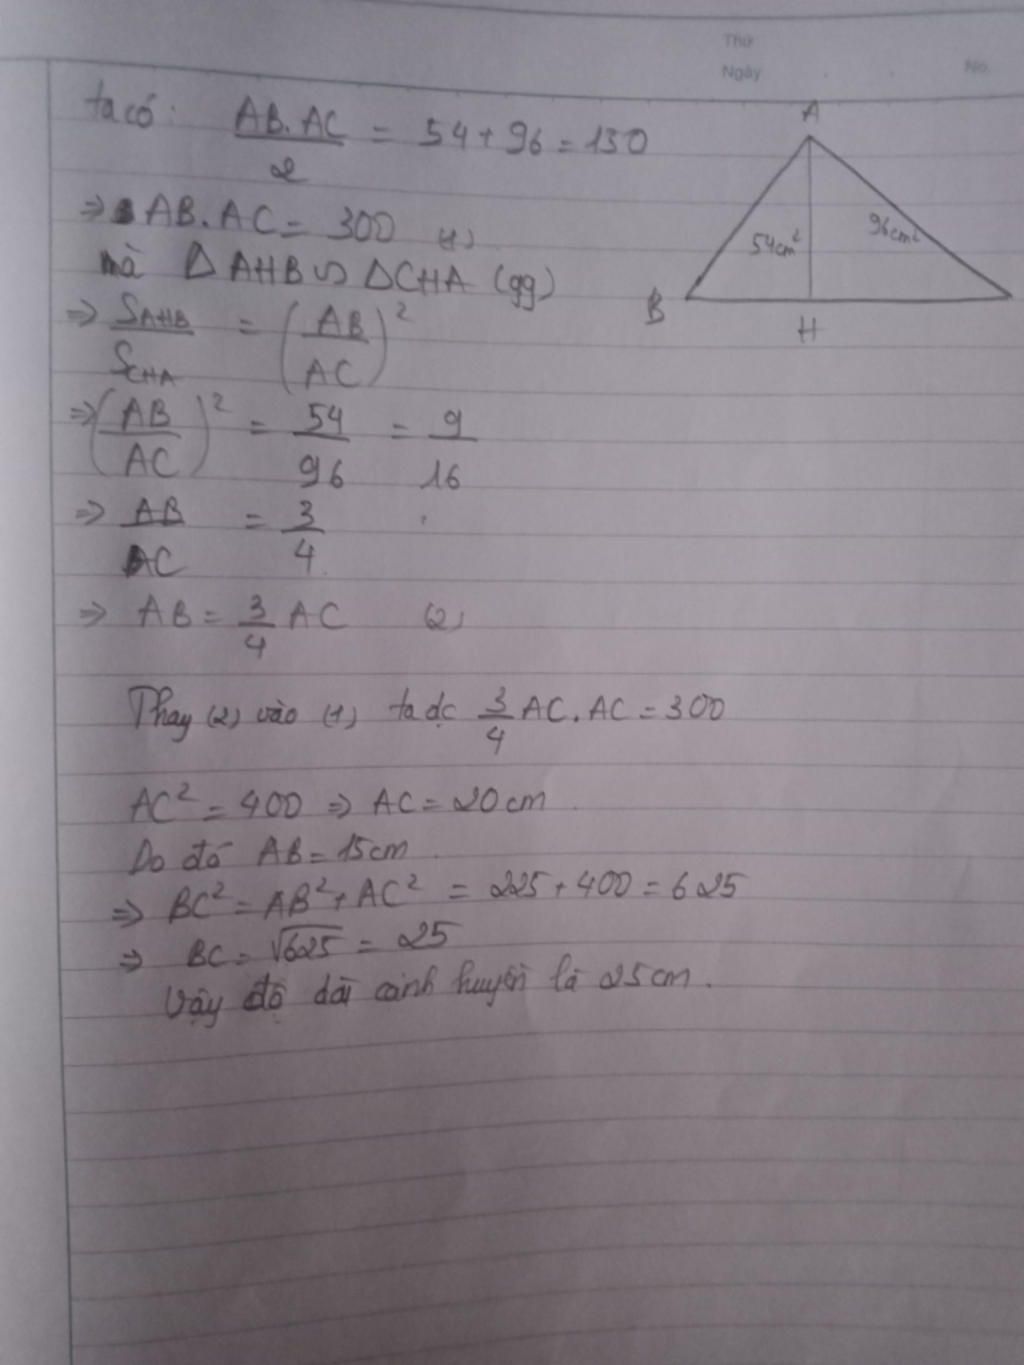 Thứ
Ngày
No.
ta có: AB.AC/2 = 54 + 96 = 150
⇒ AB.AC = 300 (1)
mà Δ AHB ∽ ΔCHA (gg)
⇒ S_AHB/S_CHA = (AB/AC)²
⇒ (AB/AC)² = 54/96 = 9/16
⇒ AB/AC = 3/4
⇒ AB = 3/4 AC (2)
Thay (2) vào (1) ta đc 3/4 AC.AC = 300
AC² = 400 ⇒ AC = 20cm
Do đó AB = 15cm
⇒ BC² = AB² + AC² = 225 + 400 = 625
⇒ BC = √625 = 25
Vậy độ dài cạnh huyền là 25cm.
A
54cm²
96cm²
B
H